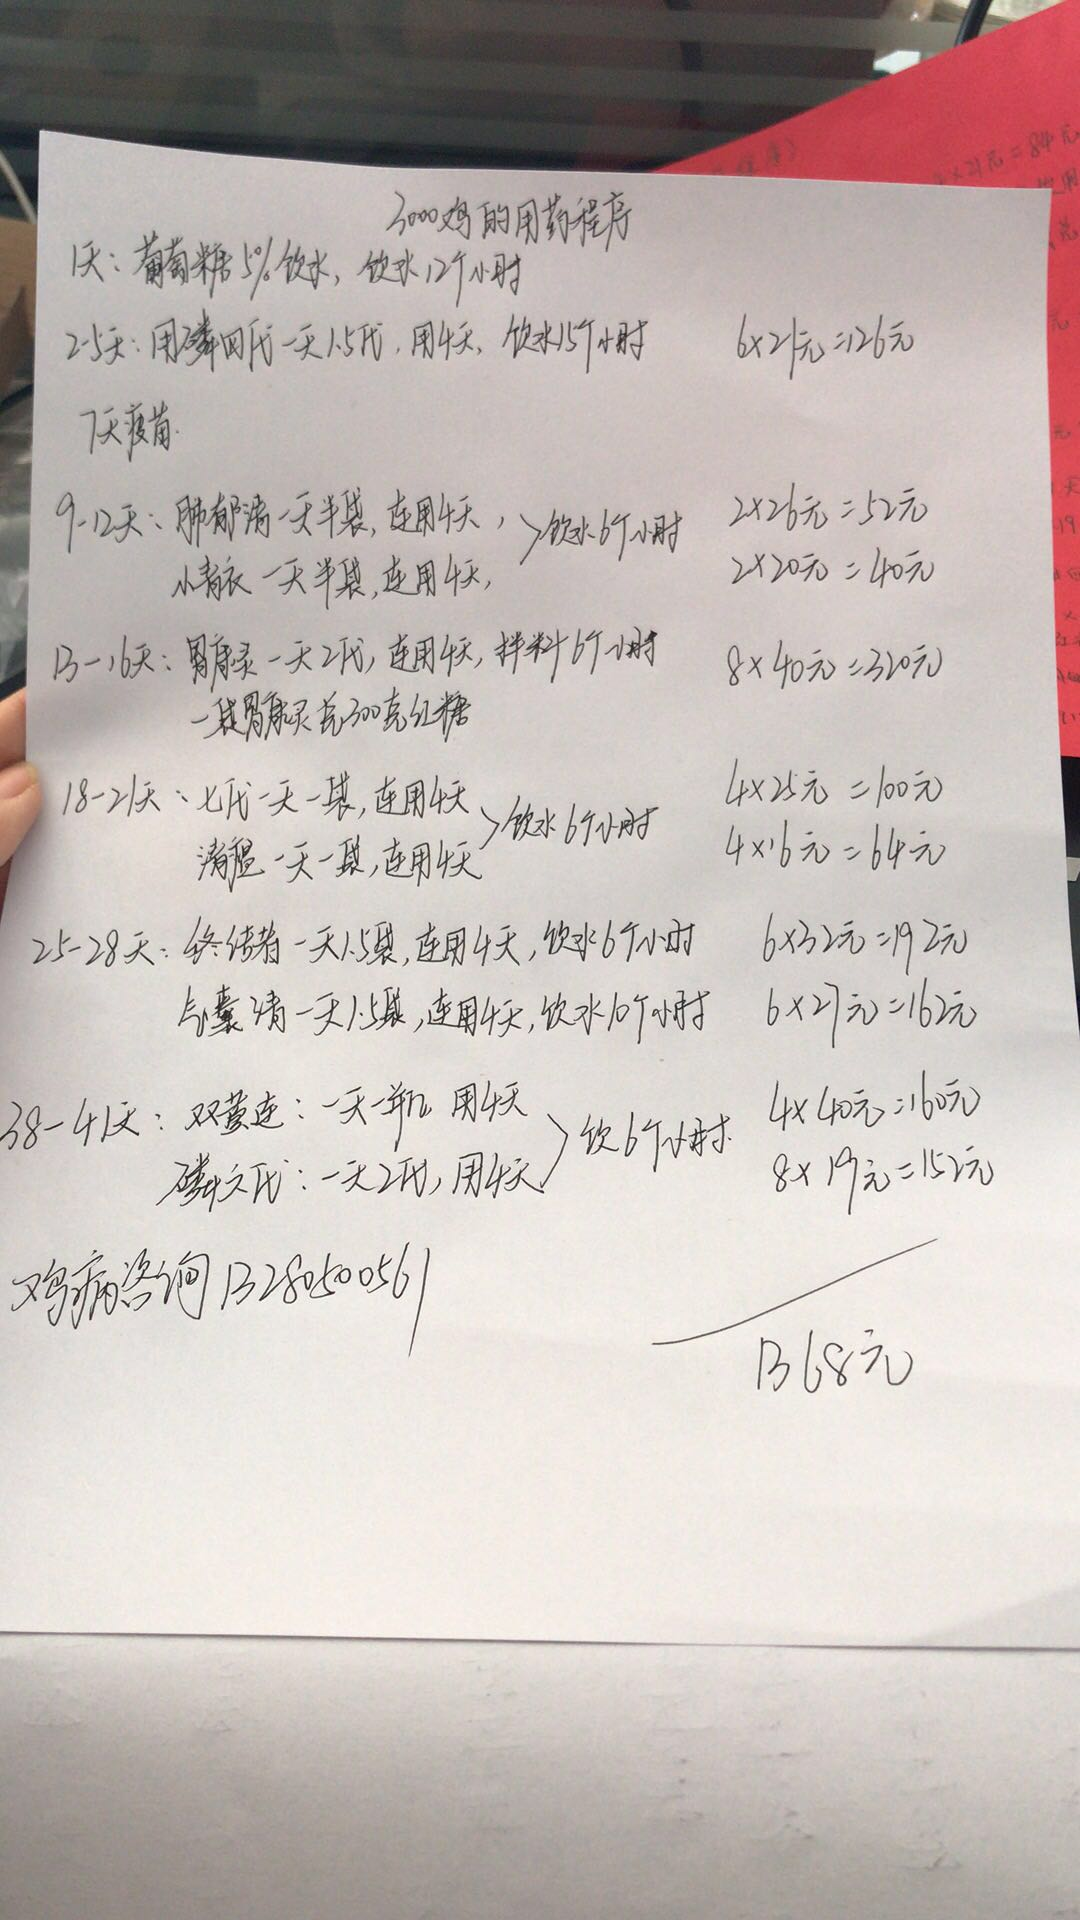 3000鸡的用药程序
1天：葡萄糖5%饮水，饮水12个小时
2-5天：用磷四代一天1.5代，用4天，饮水15个小时 6×21元=126元
7天疫苗.
9-12天：肺郁清一天半袋，连用4天， 饮水6个小时 2×26元=52元
小青衣一天半袋，连用4天， 2×20元=40元
13-16天：胃康灵一天2代，连用4天，拌料6个小时 8×40元=320元
一袋胃康灵兑300克红糖
18-21天：七代一天一袋，连用4天 饮水6个小时 4×25元=100元
清瘟一天一袋，连用4天 4×16元=64元
25-28天：终结者一天1.5袋，连用4天，饮水6个小时 6×32元=192元
气囊清一天1.5袋，连用4天，饮水10个小时 6×27元=162元
38-41天：双黄连：一天一瓶 用4天 饮6个小时. 4×40元=160元
磷六代：一天2代，用4天 8×19元=152元
鸡病咨询13280500561
1368元
×21元=84元